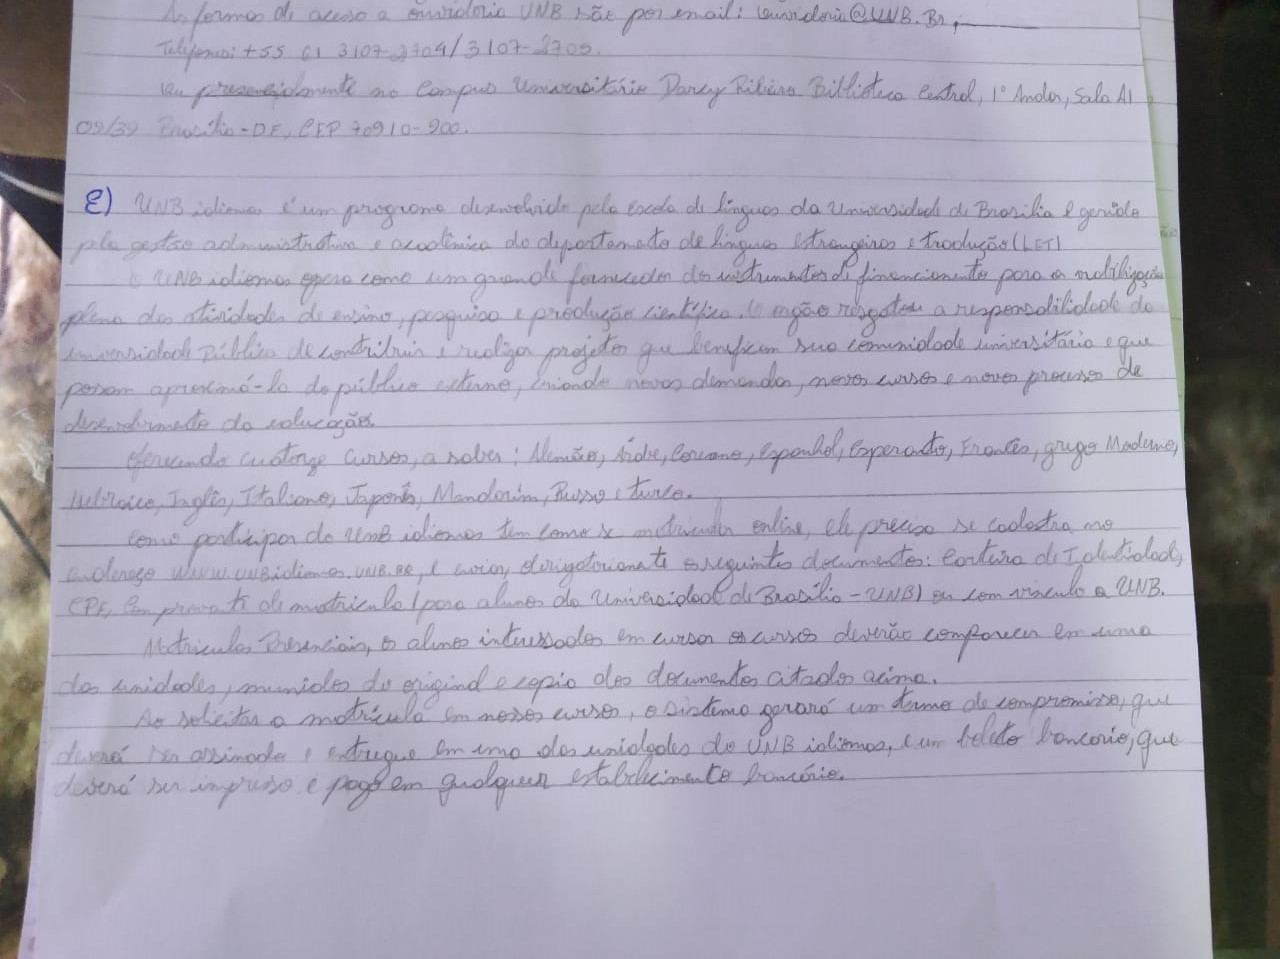 As formas de acesso a ouvidoria UNB são por email: ouvidoria@UNB.Br,
Telefones: +55 61 3107-2704/3107-2705.
ou presencialmente no Campus Universitário Darcy Ribeiro Biblioteca Central, 1º Andar, Sala A1
09/39 Brasília-DF, CEP 70910-900.
E) UNB idiomas é um programa desenvolvido pela Escola de línguas da Universidade de Brasilia e gerido
pla gestão administrativa e acadêmica do departamento de línguas estrangeiras e tradução (LET)
O UNB idiomas opera como um grande fornecedor dos instrumentos de financiamento para a mobilização
plena das atividades de ensino, pesquisa e produção científica. O orgão resgatou a responsabilidade da
universidade Pública de contribuir e realizar projetos que beneficem sua comunidade universitária e que
possam aproximá-la do público externo, criando novas demandas, novos cursos e novos processos de
desenvolvimento da educação.
Oferecendo Quatorze cursos, a saber: Alemão, Árabe, Coreano, Espanhol, Esperanto, Francês, grego Moderno,
Hebraico, Inglês, Italiano, Japonês, Mandarim, Russo e turco.
Como participar do UNB idiomas tem como se matricular online, ele precisa se cadastra no
endereço www.unbidiomas.UNB.BR, e enviar obrigatoriamente os seguintes documentos: Carteira de Identidade,
CPF, Comprovante de matricula (para alunos da Universidade de Brasília-UNB) ou com vinculo a UNB.
Matriculas Presenciais, os alunos interessados em cursar os cursos deverão comparecer em uma
das unidades, munidos do original e copia dos documentos citados acima.
Ao solicitar a matrícula em nossos cursos, o sistema gerará um termo de compromisso, que
deverá ser assinado e entregue em uma das unidades do UNB idiomas, e um boleto bancario, que
deverá ser impresso e pago em qualquer estabelecimento bancário.